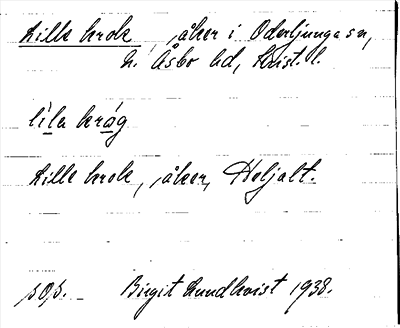 Lille krok, åker i Oderljunga sn,
N. Åsbo hd, Krist. l.
lila kråg
Lille krok, åker, Heljalt.
sOs. Birgit Lundkvist 1938.